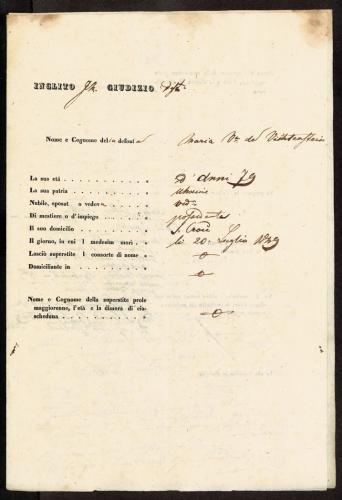 INCLITO I.R. GIUDIZIO Distle
Nome e Cognome della defunta Maria Va de
La sua età . . . . . . . . . . » d'anni 79
La sua patria . . . . . . . . »
Nubile, sposat o vedova . . . . » vedª
Di mestiere o d'impiego . . . . » possidente
Il suo domicilio . . . . . . . » S. Croce
Il giorno, in cui l medesim morì . » li 20. Luglio 1849
Lasciò superstite l consorte di nome » o
Domiciliante in . . . . . . . » o
Nome e Cognome della superstite prole
maggiorenne, l'età e la dimora di cia-
scheduna . . . . . . . . . . » o